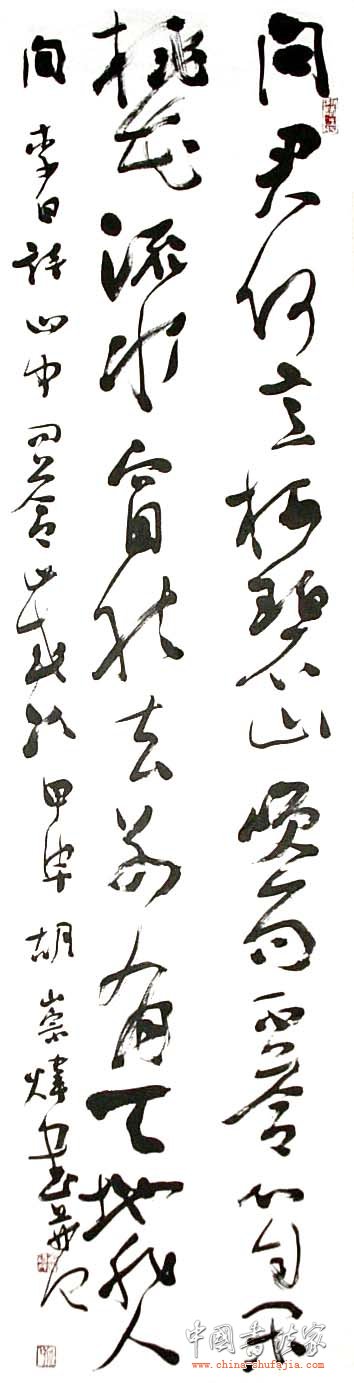 问君何意栖碧山笑而不答心自闲
桃花流水窅然去别有天地非人
间 李白詩山中问答 甲 胡崇炜书并记
中國書法家
www.china-shufajia.com